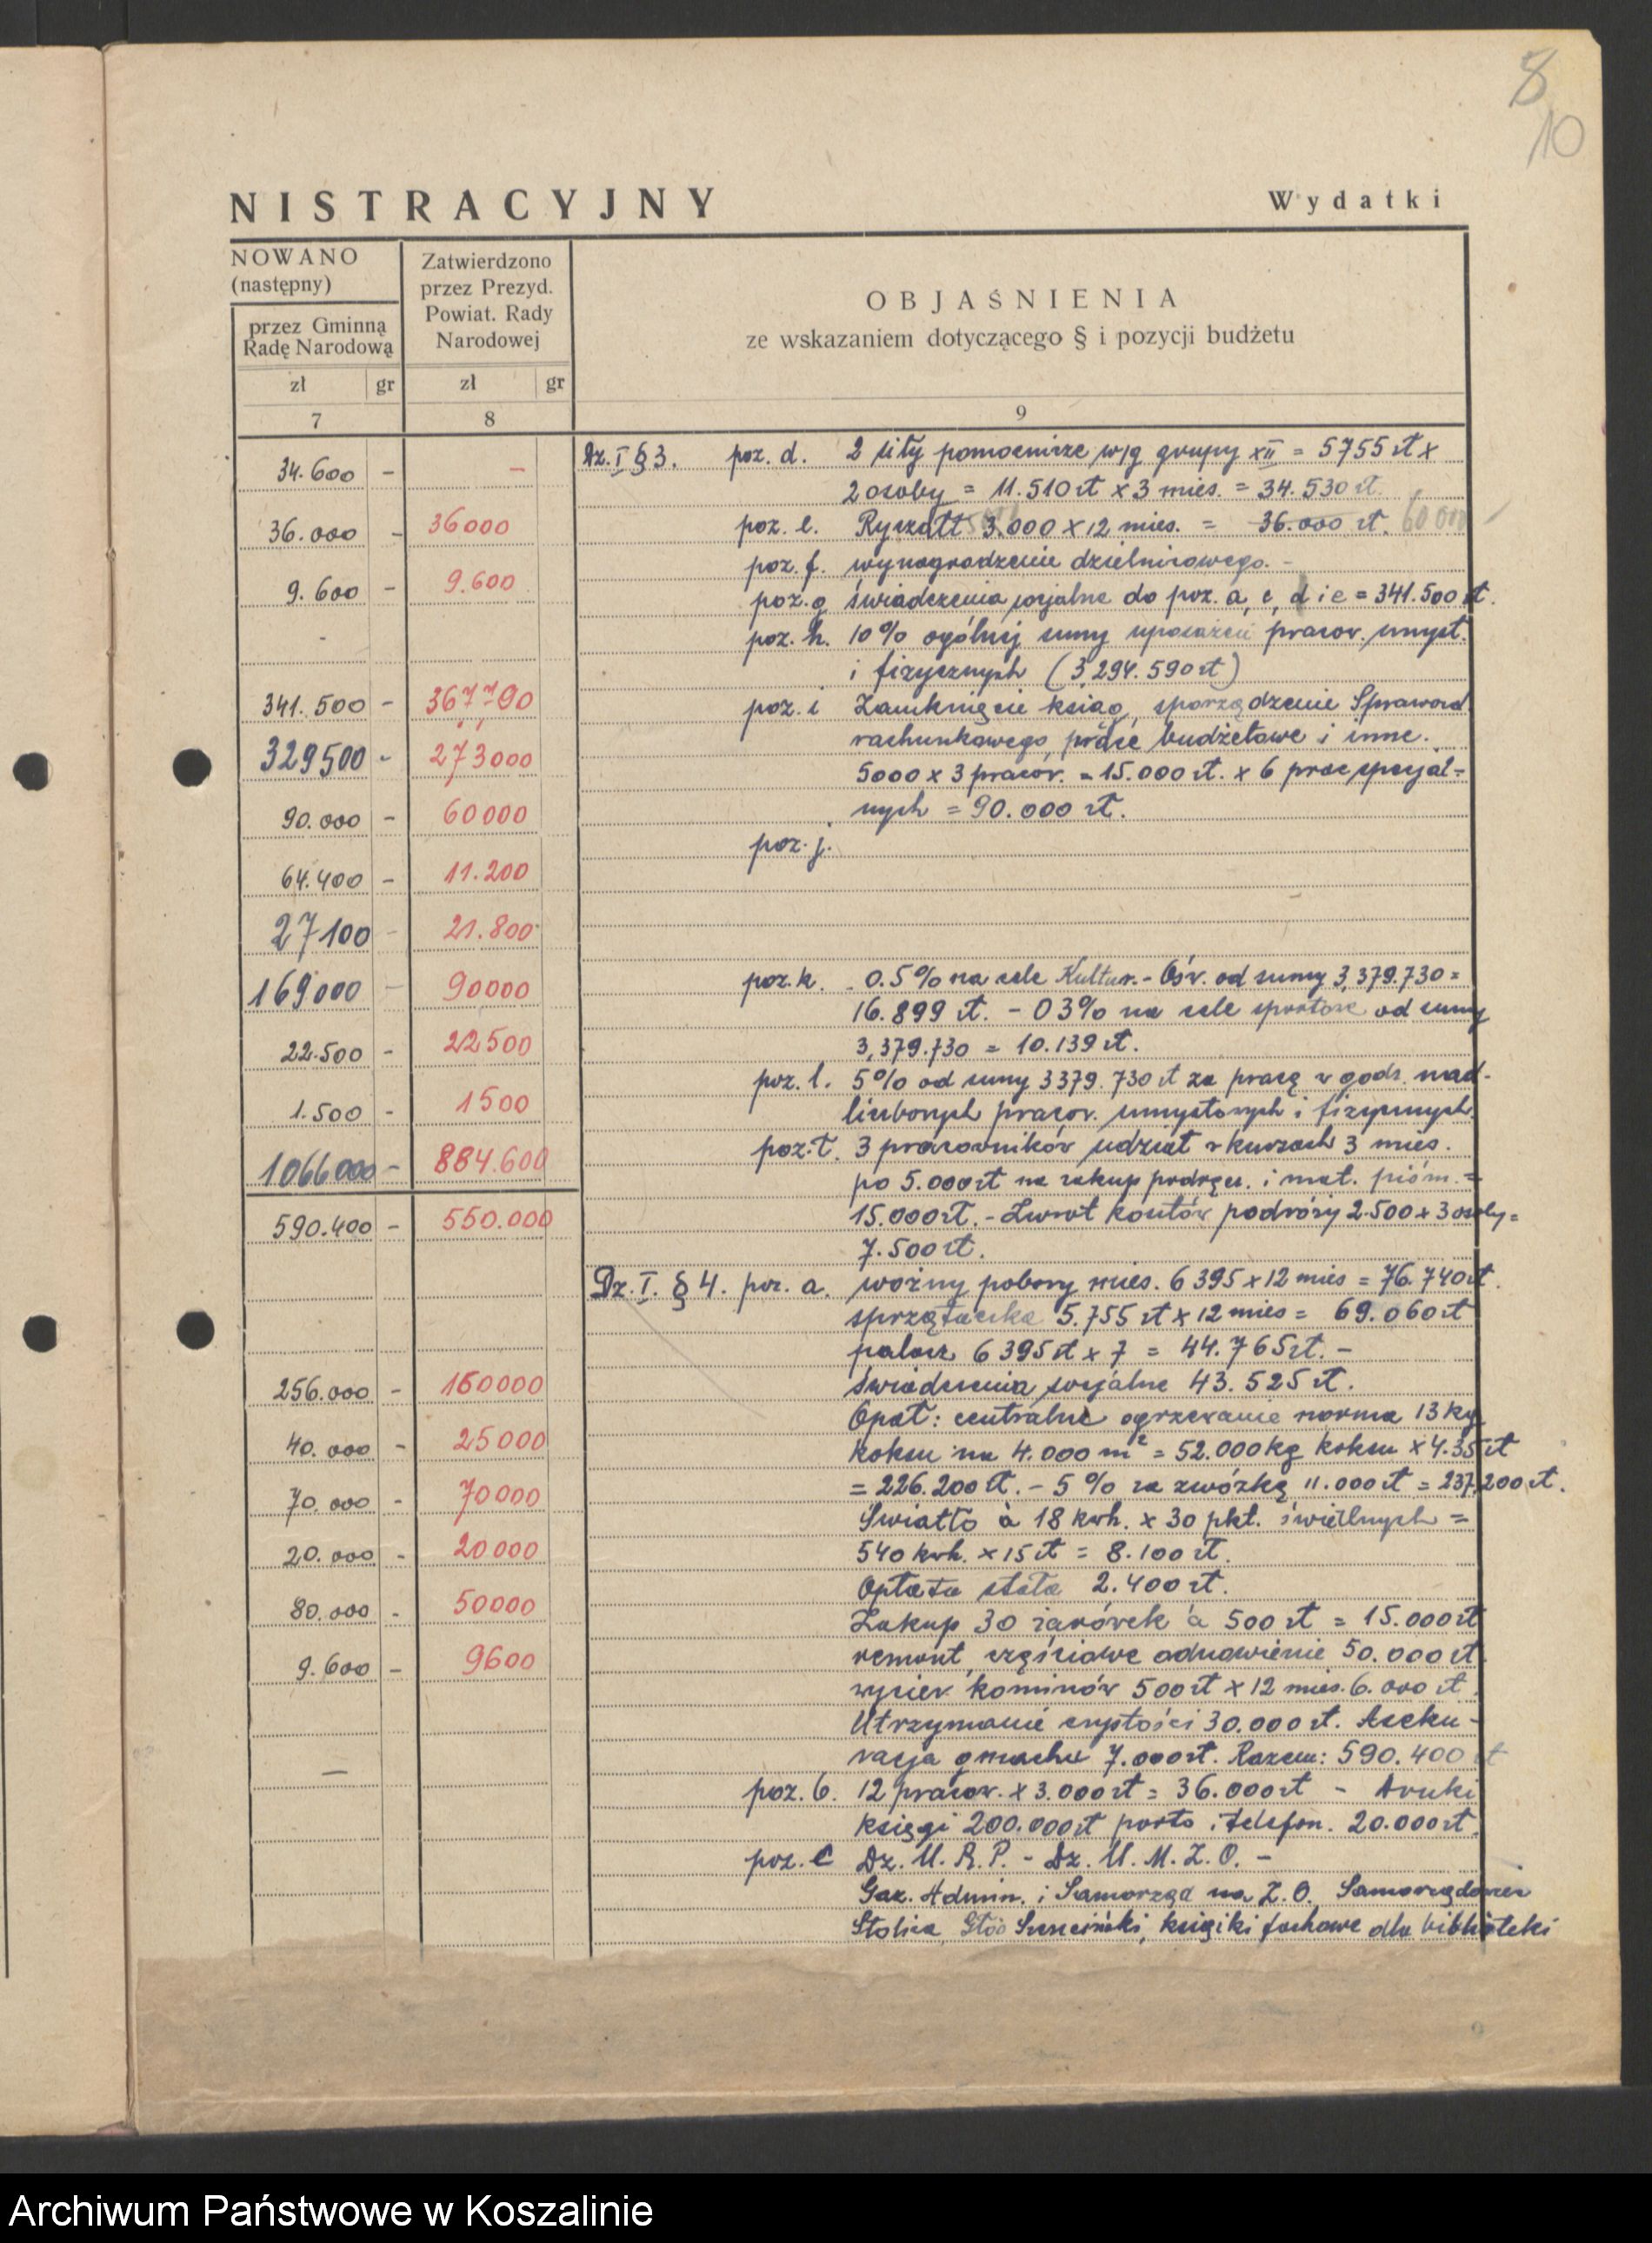 8
10
NISTRACYJNY
Wydatki
NOWANO
(następny)
przez Gminną
Radę Narodową
zł gr
7
Zatwierdzono
przez Prezyd.
Powiat. Rady
Narodowej
zł gr
8
OBJAŚNIENIA
ze wskazaniem dotyczącego § i pozycji budżetu
9
34.600 -
36.000 -
9.600 -
-
341.500 -
329500 -
90.000 -
64.400 -
27100 -
169000 -
22.500 -
1.500 -
1066000 -
590.400 -
256.000 -
40.000 -
70.000 -
20.000 -
80.000 -
9.600 -
—
—
36000
9.600
367790
273000
60000
11.200
21.800
90000
22500
1500
884.600
550.000
160000
25000
70000
20.000
50000
9600
Dz. I § 3. poz. d. 2 siły pomocnicze w/g grupy XII = 5755 zł x
2 osoby = 11.510 zł x 3 mies. = 34.530 zł.
poz. e. Ryczałt 3.000 x 12 mies. = 36.000 zł. 60000
poz. f. wynagrodzenie dzielnicowego. -
poz. g świadczenia socjalne do poz. a, c, d i e = 341.500 zł.
poz. h. 10% ogólnej sumy uposażeń pracow. umysł.
i fizycznych (3,294.590 zł)
poz. i Zamknięcie ksiąg, sporządzenie Sprawozd.
rachunkowego, prace budżetowe i inne.
5000 x 3 pracow. = 15.000 zł. x 6 prac specjal-
nych = 90.000 zł.
poz. j.
poz. k. 0.5% na cele Kultur.- Ośw. od sumy 3,379.730 =
16.899 zł. - 03% na cele sportowe od sumy
3,379.730 = 10.139 zł.
poz. l. 5% od sumy 3379.730 zł za pracę w godz. nad-
liczbowych pracow. umysłowych i fizycznych.
poz. ł. 3 pracowników udział w kursach 3 mies.
po 5.000 zł na zakup podręcz. i mat. piśm. =
15.000 zł. - Zwrot kosztów podróży 2.500 x 3 osoby =
7.500 zł.
Dz. I. § 4. poz. a. woźny pobory mies. 6395 x 12 mies = 76.740 zł.
sprzątaczka 5.755 zł x 12 mies = 69.060 zł
palacz 6395 zł x 7 = 44.765 zł. -
świadczenia socjalne 43.525 zł.
Opał: centralne ogrzewanie norma 13 kg
koksu na 4.000 m² = 52.000 kg koksu x 4.35 zł
= 226.200 zł. - 5% za zwózkę 11.000 zł = 237.200 zł.
Światło à 18 kwh. x 30 pkt. świetlnych =
540 kwh. x 15 zł = 8.100 zł.
Opłata stała 2.400 zł.
Zakup 30 żarówek à 500 zł = 15.000 zł
remont, częściowe odnowienie 50.000 zł.
wycier kominów 500 zł x 12 mies. 6.000 zł.
Utrzymanie czystości 30.000 zł. Aseku-
racja gmachu 7.000 zł. Razem: 590.400 zł
poz. b. 12 pracow. x 3.000 zł = 36.000 zł - Druki
księgi 200.000 zł porto i telefon. 20.000 zł.
poz. c Dz. U. R. P. - Dz. U. M. Z. O. -
Gaz. Admin. i Samorząd na Z. O. Samorządowiec
Stolica, Głos Szczeciński, książki fachowe dla biblioteki
Archiwum Państwowe w Koszalinie